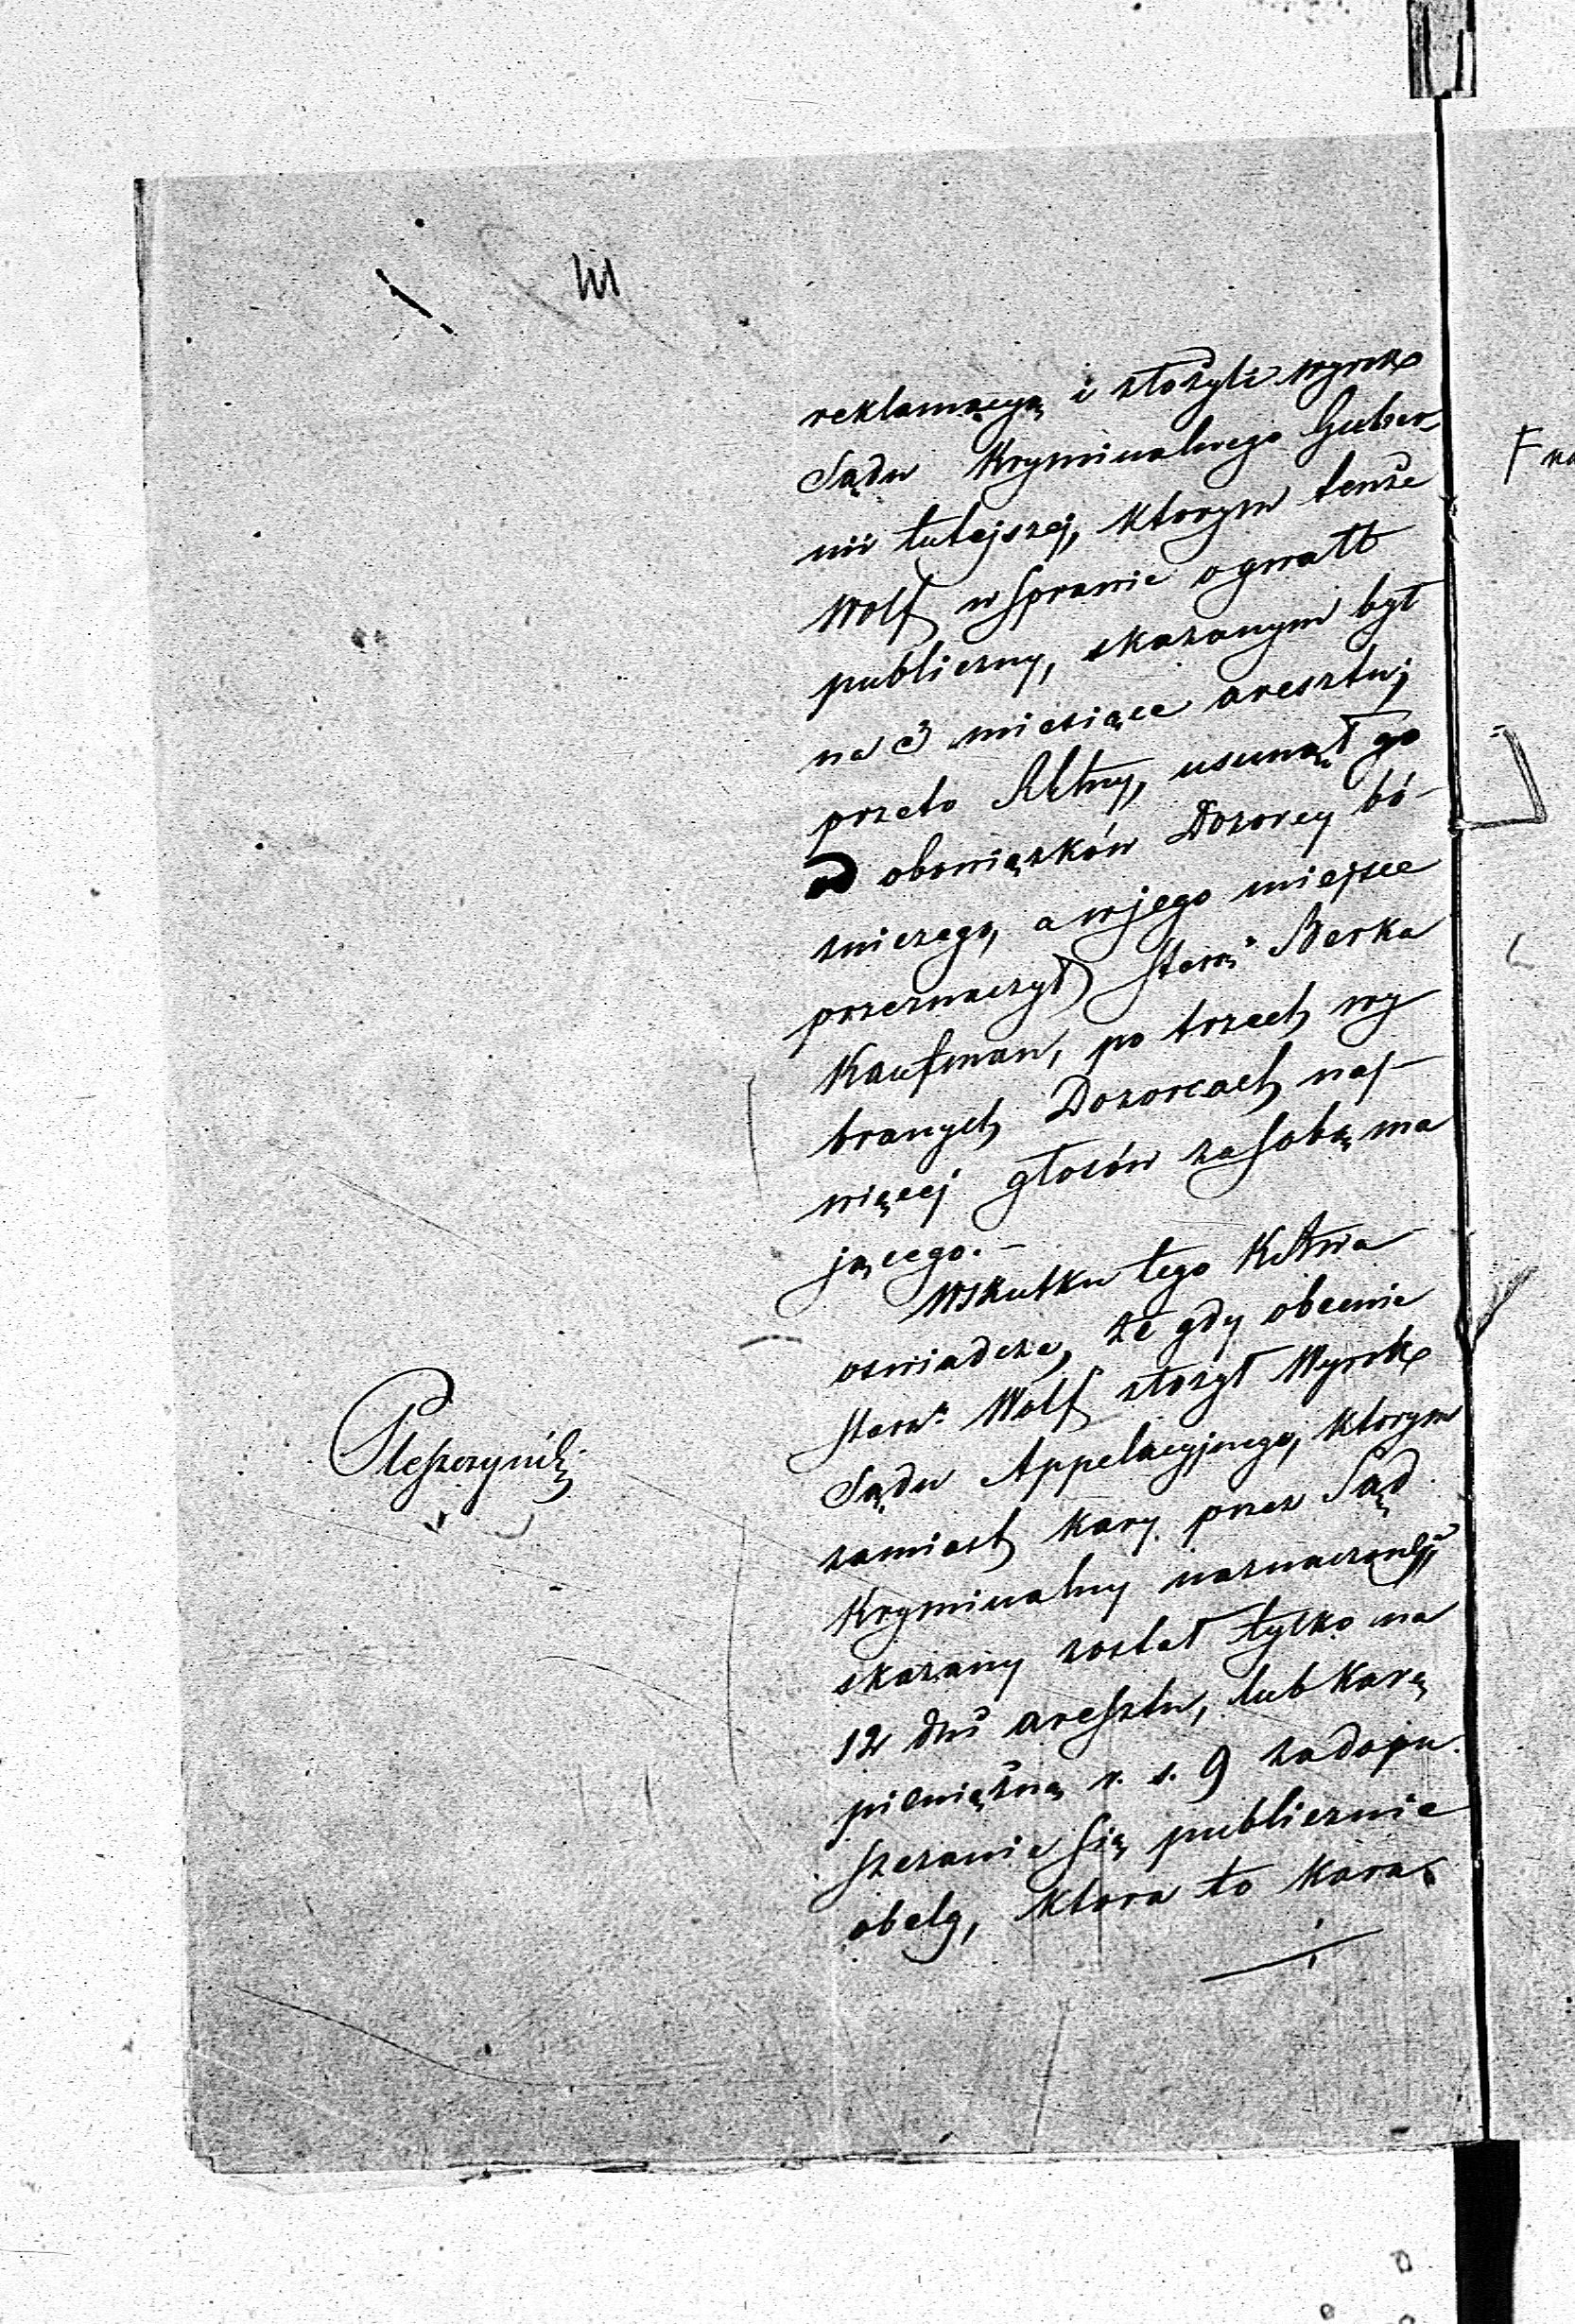 reklamacyą i złożyli wyrok
Sądu Kryminalnego Guber
nii tutejszej, ktorym tenże
Wolf w sprawie o gwałt
publiczny, skazanym był
na 3 miesiące aresztu;
przeto usunął go
od obowiązków Dozorcy bó-
zniczego, a w jego miejsce
przeznaczył Starę Berka
Kaufman, po trzech wy
branych Dozorcach naj-
więcej głosów za sobą ma
jącego. -
Wskutku tego
oswiadcza, że gdy obecnie
Starn Wolf złożył Wyrok
Sądu Appelacyjnego, ktorym
zamiast kary przez Sąd
Kryminalny naznaczonej
skazany został tylko na
12 dni aresztu, lub karę
pieniężną r. s. 9 za dopu
szczanie się publicznie
obelg, ktora to kara
Pleszczyński